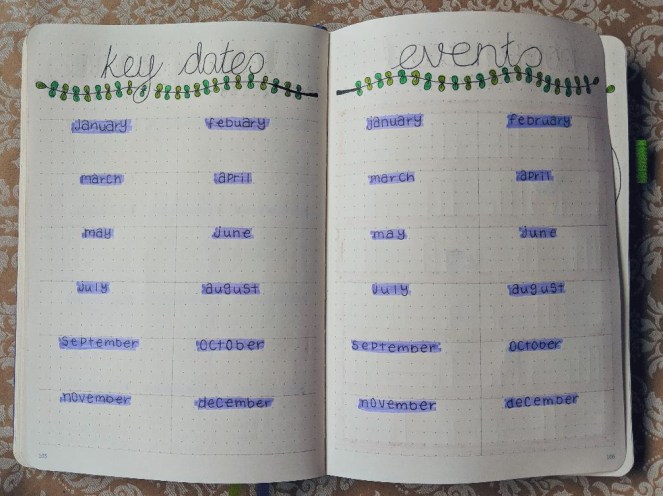 key dates
January Febuary
march april
may June
July august
September October
november december
events
January february
march april
may June
July august
September October
november december